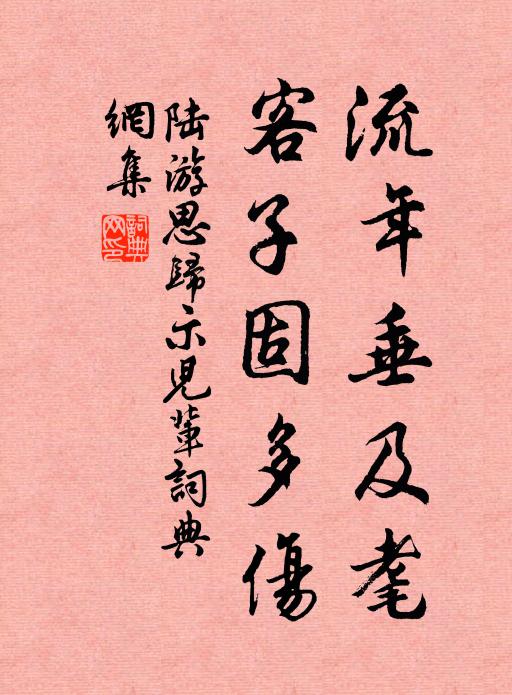 流年垂及耄
客子固多傷
陆游思歸示児輩詞典
網集
詞典
网印